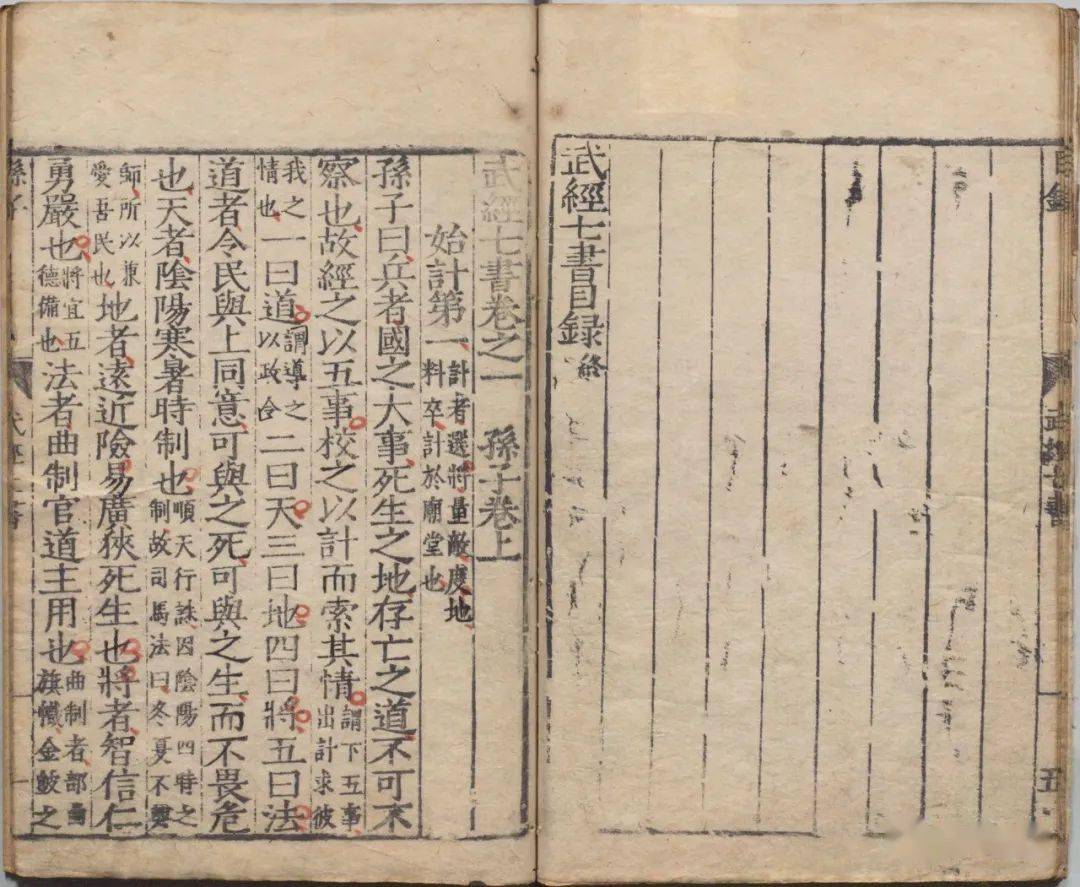 目錄 武經七書 五
武經七書目録 終
武經七書卷之一 孫子卷上
始計第一 計者選將量敵度地料卒計於廟堂也
孫子曰兵者國之大事死生之地存亡之道不可不
察也故經之以五事校之以計而索其情 謂下五事出計求彼
我之情也 一曰道 謂導之以政令 二曰天三曰地四曰將五曰法
道者令民與上同意可與之死可與之生而不畏危
也天者陰陽寒暑時制也 順天行誅因陰陽四時之制故司馬法曰冬夏不興
師所以兼愛吾民也 地者遠近險易廣狹死生也將者智信仁
勇嚴也 將宜五德備也 法者曲制官道主用也 曲制者部曲旗幟金鼓之
孫子 武經七書 一